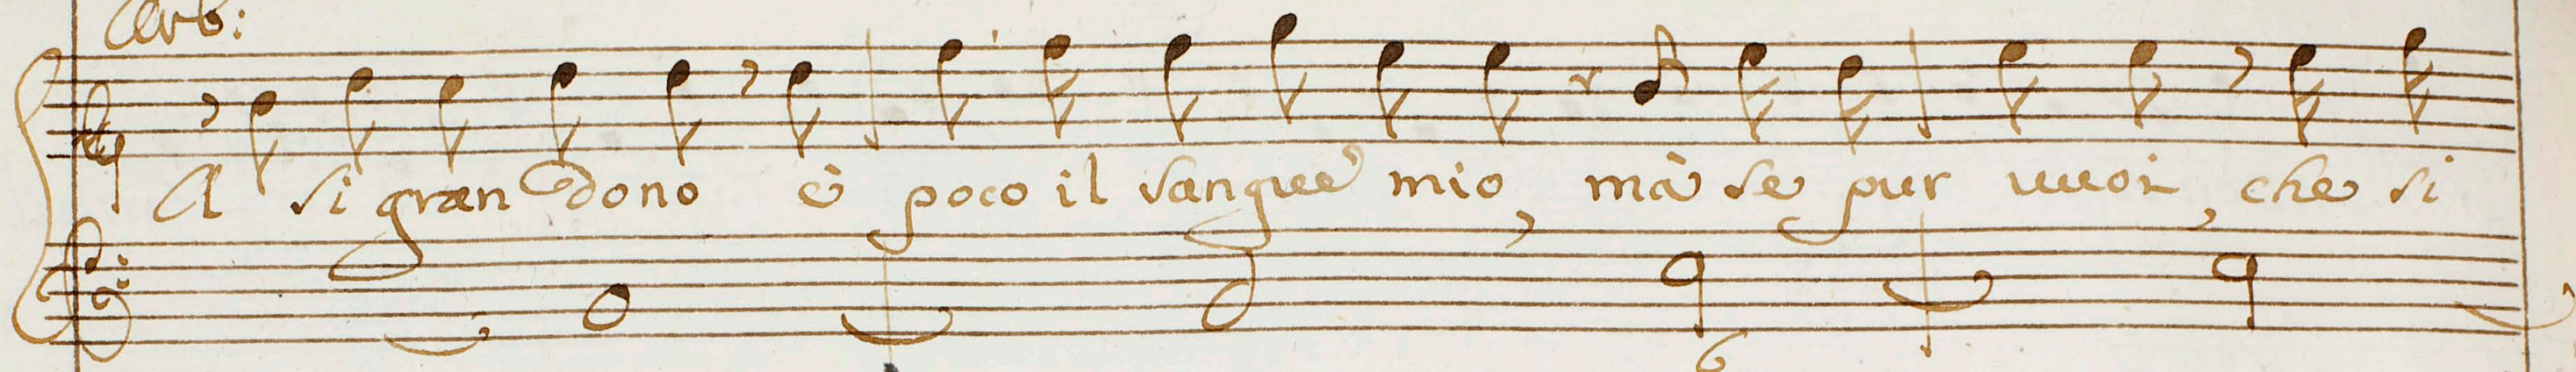 Arb:
A si gran dono è poco il sangue mio, mà se pur vuoi, che si
6